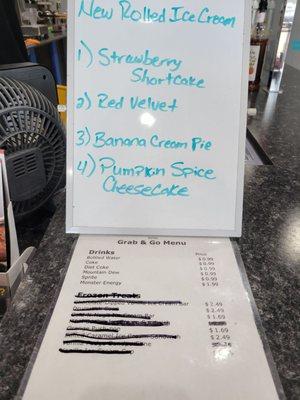 New Rolled Ice Cream
1) Strawberry
Shortcake
2) Red Velvet
3) Banana Cream Pie
4) Pumpkin Spice
Cheesecake
Grab & Go Menu
Drinks Price
Bottled Water $0.99
Coke $0.99
Diet Coke $0.99
Mountain Dew $0.99
Sprite $0.99
Monster Energy $1.99
Frozen Treats
$2.49
$2.49
$1.69
$1.69
$2.49